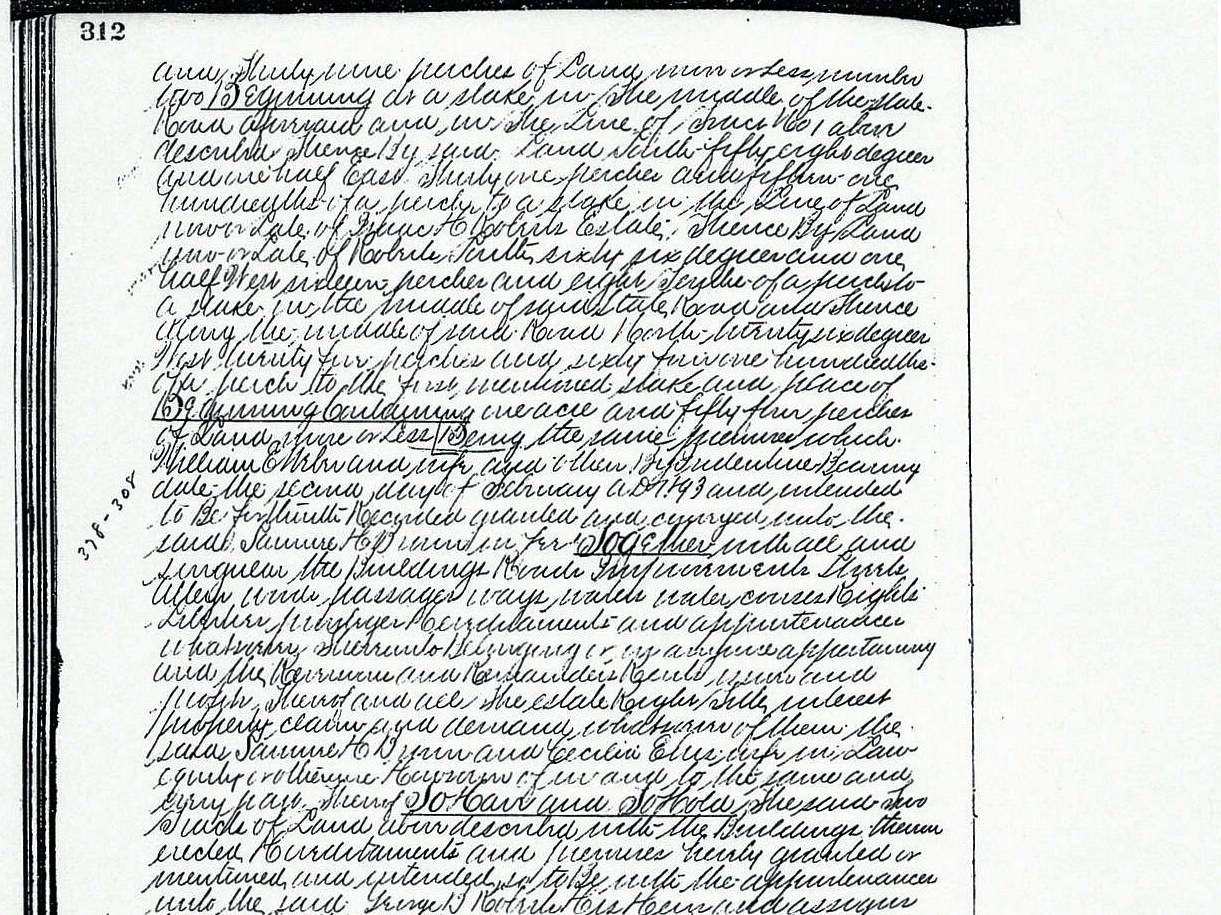 312
and Thirty nine perches of Land more or Less number
two Beginning at a stake in the middle of the State
Road aforesaid and in the Line of Tract No 1 above
described Thence By said Land South fifty eight degrees
and one half East Thirty one perches and fifteen one
hundredths of a perch to a stake in the Line of Land
now or Late of Isaac H Roberts Estate, Thence By Land
now or Late of Roberts South sixty six degrees and one
half West sixteen perches and eight Tenths of a perch to
a stake in the middle of said State Road and Thence
along the middle of said Road North twenty six degrees
West twenty four perches and sixty four one hundredths
of a perch to the first mentioned stake and place of
Beginning Containing one acre and fifty four perches
of Land more or Less Being the same premises which
William E Weber and wife and others By Indenture Bearing
date the second day of February A D 1893 and intended
to Be forthwith Recorded granted and conveyed unto the
378-308
said H in fee Together with all and
singular the Buildings Roads Improvements Streets
alleys woods passages ways waters water courses Rights
Liberties privileges Hereditaments and appurtenances
whatsoever Thereunto Belonging or in anywise appertaining
and the Reversions and Remainders Rents issues and
profits Thereof and all the estate Right Title interest
property claim and demand whatsoever of them the
said H and Cecilia E his wife in Law
equity or otherwise Howsoever of in and to the same and
every part Thereof To Have and To Hold The said Two
Tracts of Land above described with the Buildings thereon
erected Hereditaments and premises hereby granted or
mentioned and intended so to Be with the appurtenances
unto the said George B Roberts His Heirs and assigns